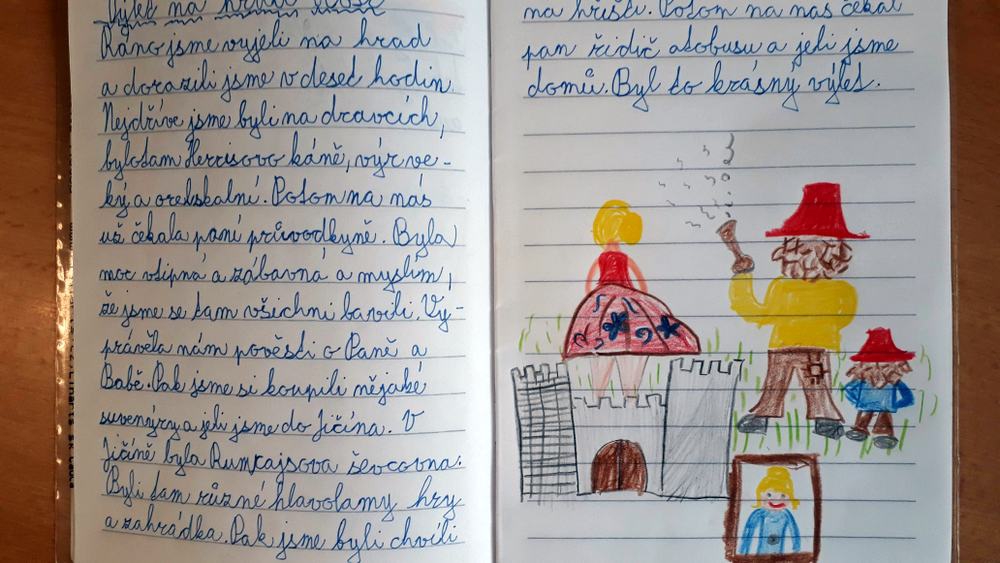 Výlet na hrad Kost
Ráno jsme vyjeli na hrad
a dorazili jsme v deset hodin.
Nejdříve jsme byli na dravcích,
bylo tam Herrisovo káně, výr ve-
ký a orelskalní. Potom na nás
už čekala paní průvodkyně. Byla
moc vtipná a zábavná a myslím,
že jsme se tam všichni bavili. Vy-
právěla nám pověsti o Paně a
Babě. Pak jsme si koupili nějaké
suvenýry a jeli jsme do Jičína. V
Jičíně byla Rumcajsova ševcovna.
Byli tam různé hlavolamy hry
a zahrádka. Pak jsme byli chvíli
na hřišti. Potom na nás čekal
pan řidič atobusu a jeli jsme
domů. Byl to krásný výlet.